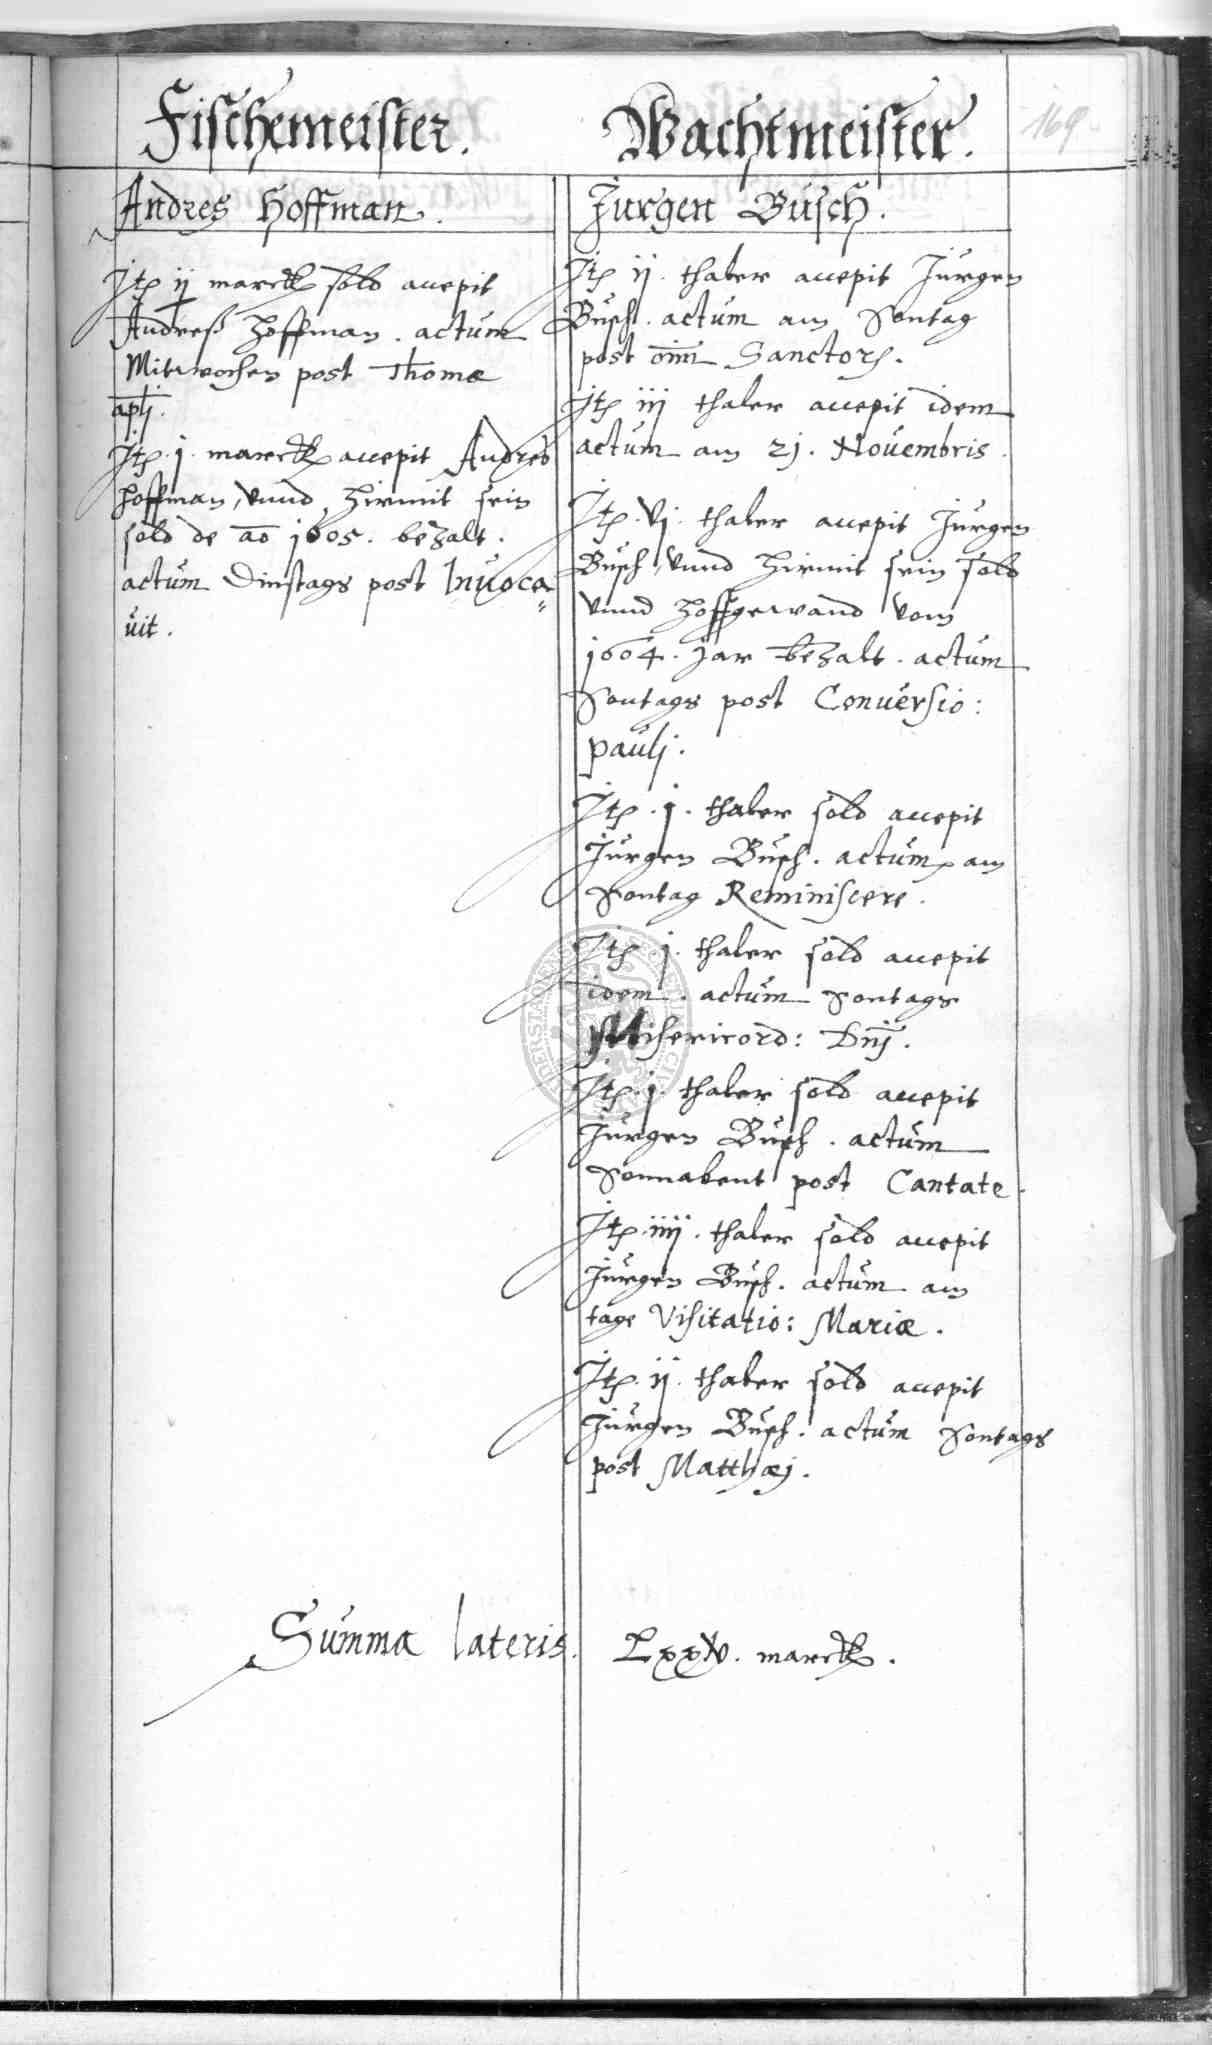 169
Fischemeister.
Andres Hoffman.
Itē ij marck sold accepit
Andreß Hoffman. actum
Mitwochen post Thomæ
aplj.
Itē. j. marck accepit Andres
Hoffman, vnnd hirmit sein
sold de ao 1605. bezalt.
actum Dinstags post Inuoca=
uit.
Wachtmeister.
Jurgen Busch.
Itē ij. thaler accepit Jurgen
Busch. actum am Sontag
post oīm Sanctorū.
Itē iij thaler accepit idem
actum am 21. Nouembris.
Itē. vj. thaler accepit Jurgen
Busch, vnnd hirmit sein sold
vnnd hoffgewand vom
1604. jar bezalt. actum
Sontags post Conuersio:
paulj.
Itē. j. thaler sold accepit
Jurgen Busch. actum am
Sontag Reminiscere.
Itē j. thaler sold accepit
idem. actum Sontags
Misericord: Dnj.
Itē. j. thaler sold accepit
Jurgen Busch. actum
Sonnabent post Cantate.
Itē. iiij. thaler sold accepit
Jurgen Busch. actum am
tage Visitatio: Mariæ.
Itē. ij. thaler sold accepit
Jurgen Busch. actum Sontags
post Matthæj.
Summa lateris. Lxxv. marck.